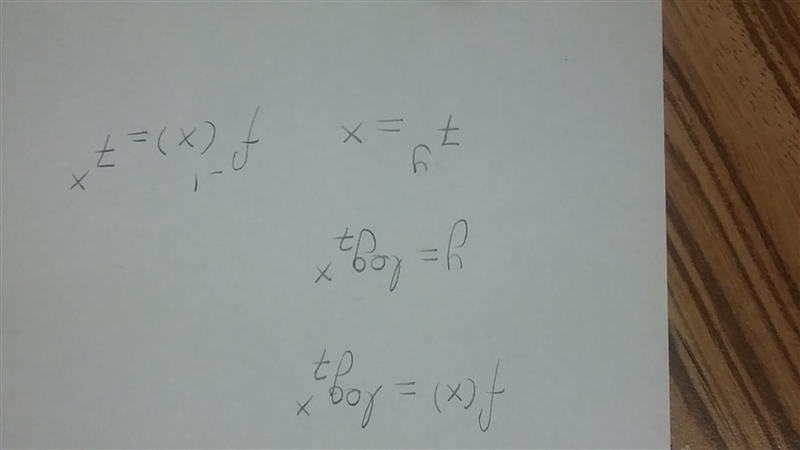 f(x) = log₇ˣ
y = log₇ˣ
7ʸ = x    f⁻¹(x) = 7ˣ